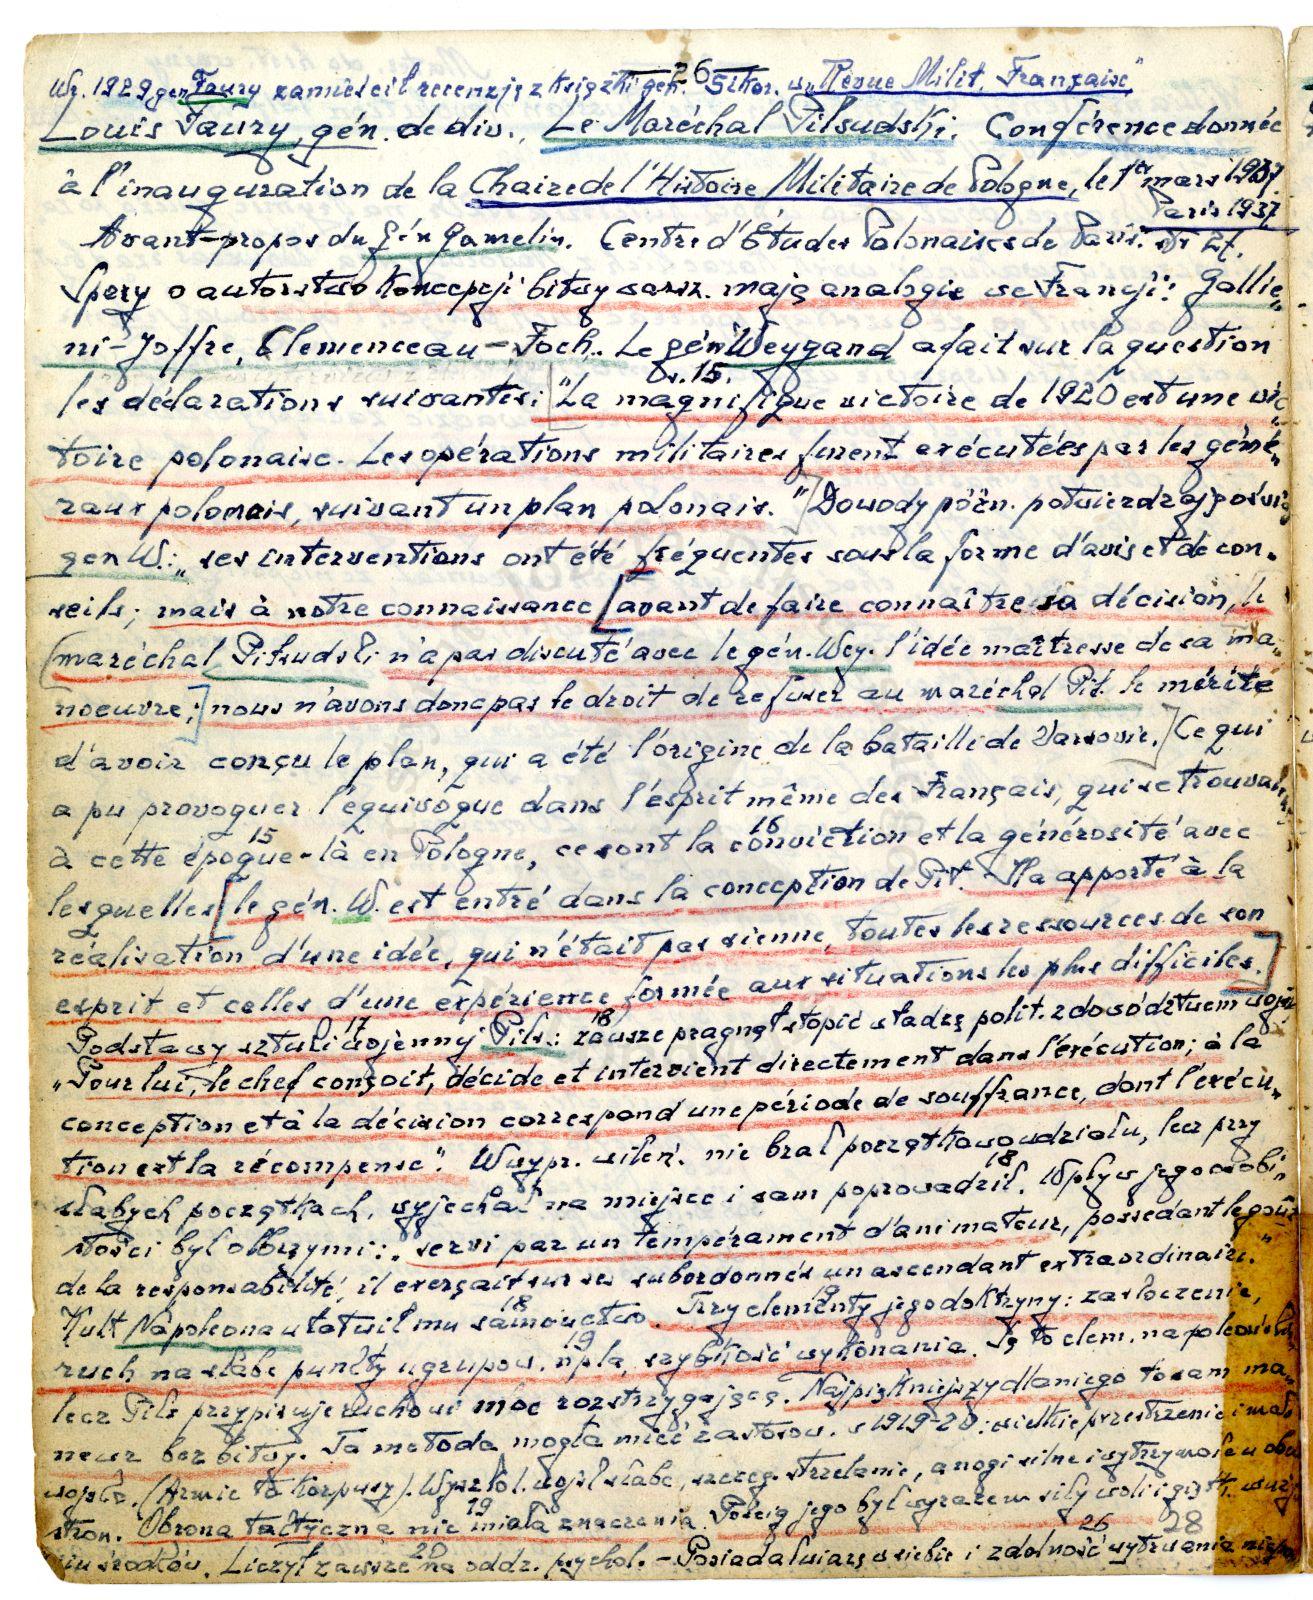 26
W r. 1929 gen Faury zamieścił recenzję z książki gen. Sikor. w „Revue Milit. Française"
Louis Faury, gén. de div. Le Maréchal Piłsudski. Conférence donnée
à l'inauguration de la Chaire de l'Histoire Militaire de Pologne, le 1er mars 1937.
Paris 1937
Avant-propos du gén Gamelin. Centre d'Études Polonaises de Paris. str 27.
Spory o autorstwo koncepcji bitwy warsz. mają analogie we Francji: Gallie„
ni-Joffre, Clemenceau-Foch. Le gén Weygand a fait sur la question
s. 15.
les déclarations suivantes: ["La magnifique victoire de 1920 est une vic„
toire polonaise. Les opérations militaires furent exécutées par les géné„
raux polonais, suivant un plan polonais."] Dowody późn. potwierdzają
gen W.: „ses interventions ont été fréquentes sous la forme d'avis et de con„
seils; mais à notre connaissance [avant de faire connaître sa décision, le
(maréchal Piłsudski n'a pas discuté avec le gén. Wey. l'idée maîtresse de sa ma„
noeuvre;] nous n'avons donc pas le droit de refuser au maréchal Pił. le mérite
d'avoir conçu le plan, qui a été l'origine de la bataille de Varsovie.] Ce qui
a pu provoquer l'équivoque dans l'esprit même des Français, qui se trouvaient
15 16
à cette époque-là en Pologne, ce sont la conviction et la générosité avec
lesquelles [le gén. W. est entré dans la conception de Pił. Il a apporté à la
réalisation d'une idée, qui n'était pas sienne, toutes les ressources de son
esprit et celles d'une expérience formée aux situations les plus difficiles.]
17 18
Podstawy sztuki wojennej Piłs.: zawsze pragnął stopić władzę polit. z dowództwem wojsk
„Pour lui, le chef conçoit, décide et intervient directement dans l'exécution; à la
conception et à la décision correspond une période de souffrance, dont l'exécu„
tion est la récompense". W wypr. wileń. nie brał początkowo udziału, lecz przy
18
słabych początkach, wyjechał na miejsce i sam poprowadził. Wpływ jego osobi„
stości był olbrzymi: „servi par un tempérament d'animateur, possédant le goût
de la responsabilité, il exerçait sur ses subordonnés un ascendant extraordinaire."
18 19
Kult Napoleona ułatwił mu samouctwo. Trzy elementy jego doktryny: zaskoczenie,
19
ruch na słabe punkty ugrupow. npla, szybkość wykonania. Są to elem. napoleońskie
lecz Piłs przypisuje ruchowi moc rozstrzygającą. Najpiękniejszy dla niego to sam ma„
newr bez bitwy. Ta metoda mogła mieć zastosow. w 1919-20: wielkie przestrzenie i małe
wojska. (Armie to korpusy). Wyszkol. wojsk słabe, szczeg. strzelanie, a nogi silne i wytrzymałe u obu
19
stron. Obrona taktyczna nie miała znaczenia. Pościg jego był wyrazem siły woli i
28
20 26
środków. Liczył zawsze na oddz. psychol. - Posiadał wiarę w siebie i zdolność wytrwania